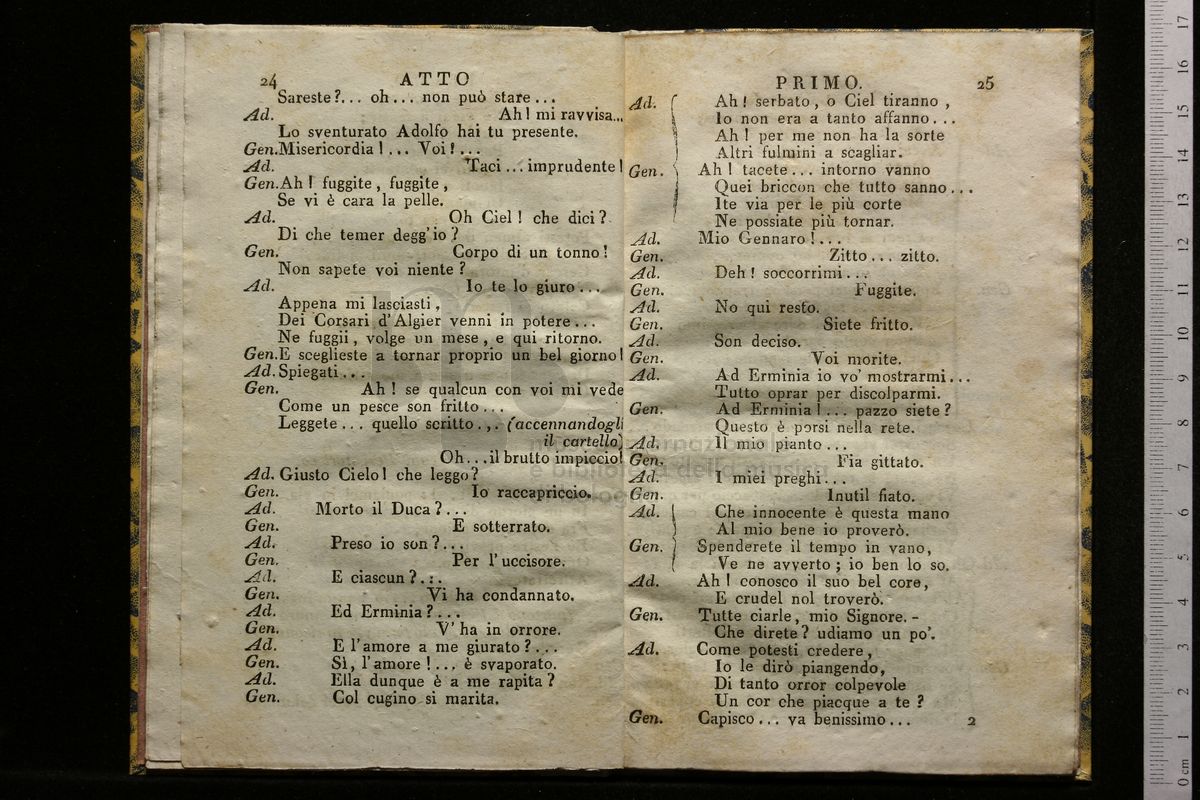 24 ATTO
Sareste?... oh... non può stare...
Ad. Ah! mi ravvisa...
Lo sventurato Adolfo hai tu presente.
Gen. Misericordia!... Voi!...
Ad. Taci... imprudente!
Gen. Ah! fuggite, fuggite,
Se vi è cara la pelle.
Ad. Oh Ciel! che dici?
Di che temer degg'io?
Gen. Corpo di un tonno!
Non sapete voi niente?
Ad. Io te lo giuro...
Appena mi lasciasti,
Dei Corsari d'Algier venni in potere...
Ne fuggii, volge un mese, e qui ritorno.
Gen. E sceglieste a tornar proprio un bel giorno!
Ad. Spiegati...
Gen. Ah! se qualcun con voi mi vede
Come un pesce son fritto...
Leggete... quello scritto... (accennandogli
il cartello)
Oh... il brutto impiccio!
Ad. Giusto Cielo! che leggo?
Gen. Io raccapriccio.
Ad. Morto il Duca?...
Gen. E sotterrato.
Ad. Preso io son?...
Gen. Per l'uccisore.
Ad. E ciascun?...
Gen. Vi ha condannato.
Ad. Ed Erminia?...
Gen. V'ha in orrore.
Ad. E l'amore a me giurato?...
Gen. Sì, l'amore!... è svaporato.
Ad. Ella dunque è a me rapita?
Gen. Col cugino si marita.
PRIMO. 25
Ad. Ah! serbato, o Ciel tiranno,
Io non era a tanto affanno...
Ah! per me non ha la sorte
Altri fulmini a scagliar.
Gen. Ah! tacete... intorno vanno
Quei briccon che tutto sanno...
Ite via per le più corte
Ne possiate più tornar.
Ad. Mio Gennaro!...
Gen. Zitto... zitto.
Ad. Deh! soccorrimi...
Gen. Fuggite.
Ad. No qui resto.
Gen. Siete fritto.
Ad. Son deciso.
Gen. Voi morite.
Ad. Ad Erminia io vo' mostrarmi...
Tutto oprar per discolparmi.
Gen. Ad Erminia!... pazzo siete?
Questo è porsi nella rete.
Ad. Il mio pianto...
Gen. Fia gittato.
Ad. I miei preghi...
Gen. Inutil fiato.
Ad. Che innocente è questa mano
Al mio bene io proverò.
Gen. Spenderete il tempo in vano,
Ve ne avverto; io ben lo so.
Ad. Ah! conosco il suo bel core,
E crudel nol troverò.
Gen. Tutte ciarle, mio Signore. -
Che direte? udiamo un po'.
Ad. Come potesti credere,
Io le dirò piangendo,
Di tanto orror colpevole
Un cor che piacque a te?
Gen. Capisco... va benissimo... 2